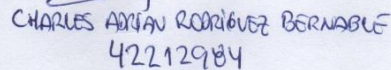 CHARLES ADRIÁN RODRÍGUEZ BERNABLE
42212984